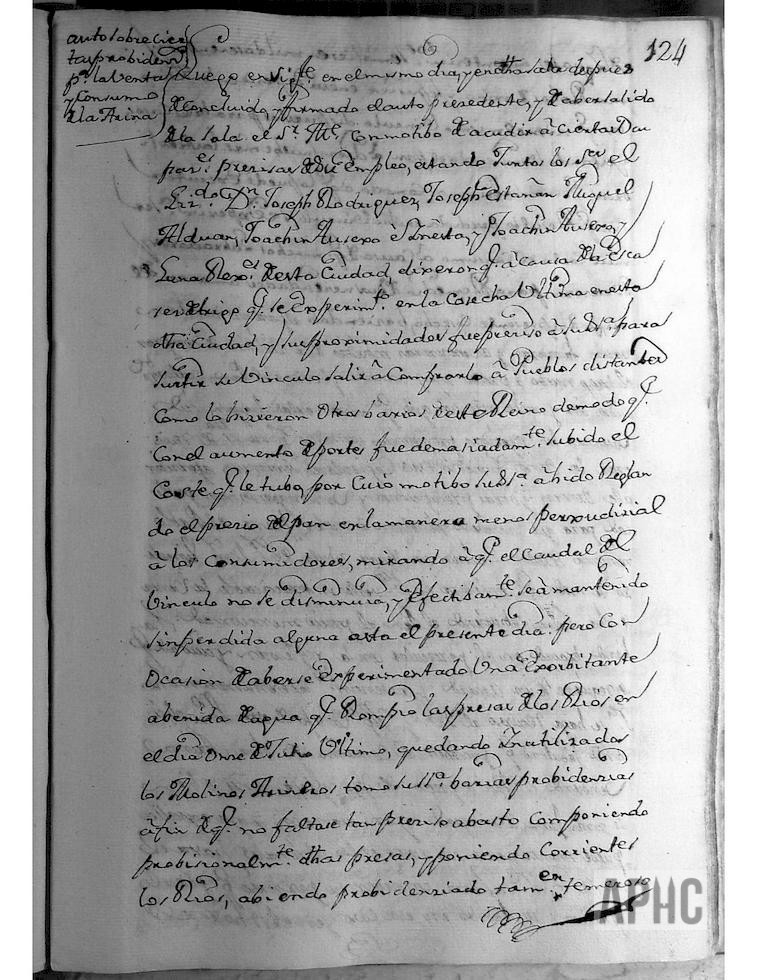 124
auto sobre cier
tas probidens.
p.ª la Venta
y Consumo
de la Arina
Luego en sig.te en el mismo dia, y en dha sala despues
de concluido, y firmado el auto presedente, y de aber salido
de la sala el S.r Al.e con motibo de acudir à ciertas Ocu
par.es presisas de su empleo, estando Juntos los S.res el
Liz.do D.n Joseph Rodriguez, Joseph Estañan Miguel
Alduan, Joachin Ausero è Ynesta, y Joachin Ausero, y
Luna Rex.es de esta Ciudad, dixeron q.e à causa de la Esca
ser de trigo q.e se Experim.to en la Cosecha Ultima en esta
dha Ciudad, y sus proximidades fue preciso à su S.ª para
surtir su Vinculo salir à Comprarlo à Pueblos distantes
Como lo hizieron Otros barios de este Reino de modo q.e
con el aumento de portes fue demasiadam.te subido el
Coste q.e le tubo, por Cuio motibo su S.ª à hido Reglan
do el prezio del pan en la manera menos perxudizial
à los Consumidores, mirando à q.e el Caudal del
Vinculo no se disminuia, y efectibam.te se à mantenido
sin perdida alguna asta el presente dia: pero Con
Ocasion de aberse Experimentado Una Exorbitante
abenida de agua q.e Rompio las presas de los Rios en
el dia Onze de Julio Ultimo, quedando Ynutilizados
los Molinos Arineros tomo su S.ª barias probidenzias
à fin de q.e no faltase tan preziso abasto Componiendo
probisionalm.te dhas presas, y poniendo Corrientes
los Rios, abiendo probidenziado tam.en temeroso
APHC